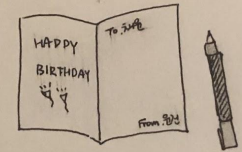 HAPPY
BIRTHDAY
To.
From.